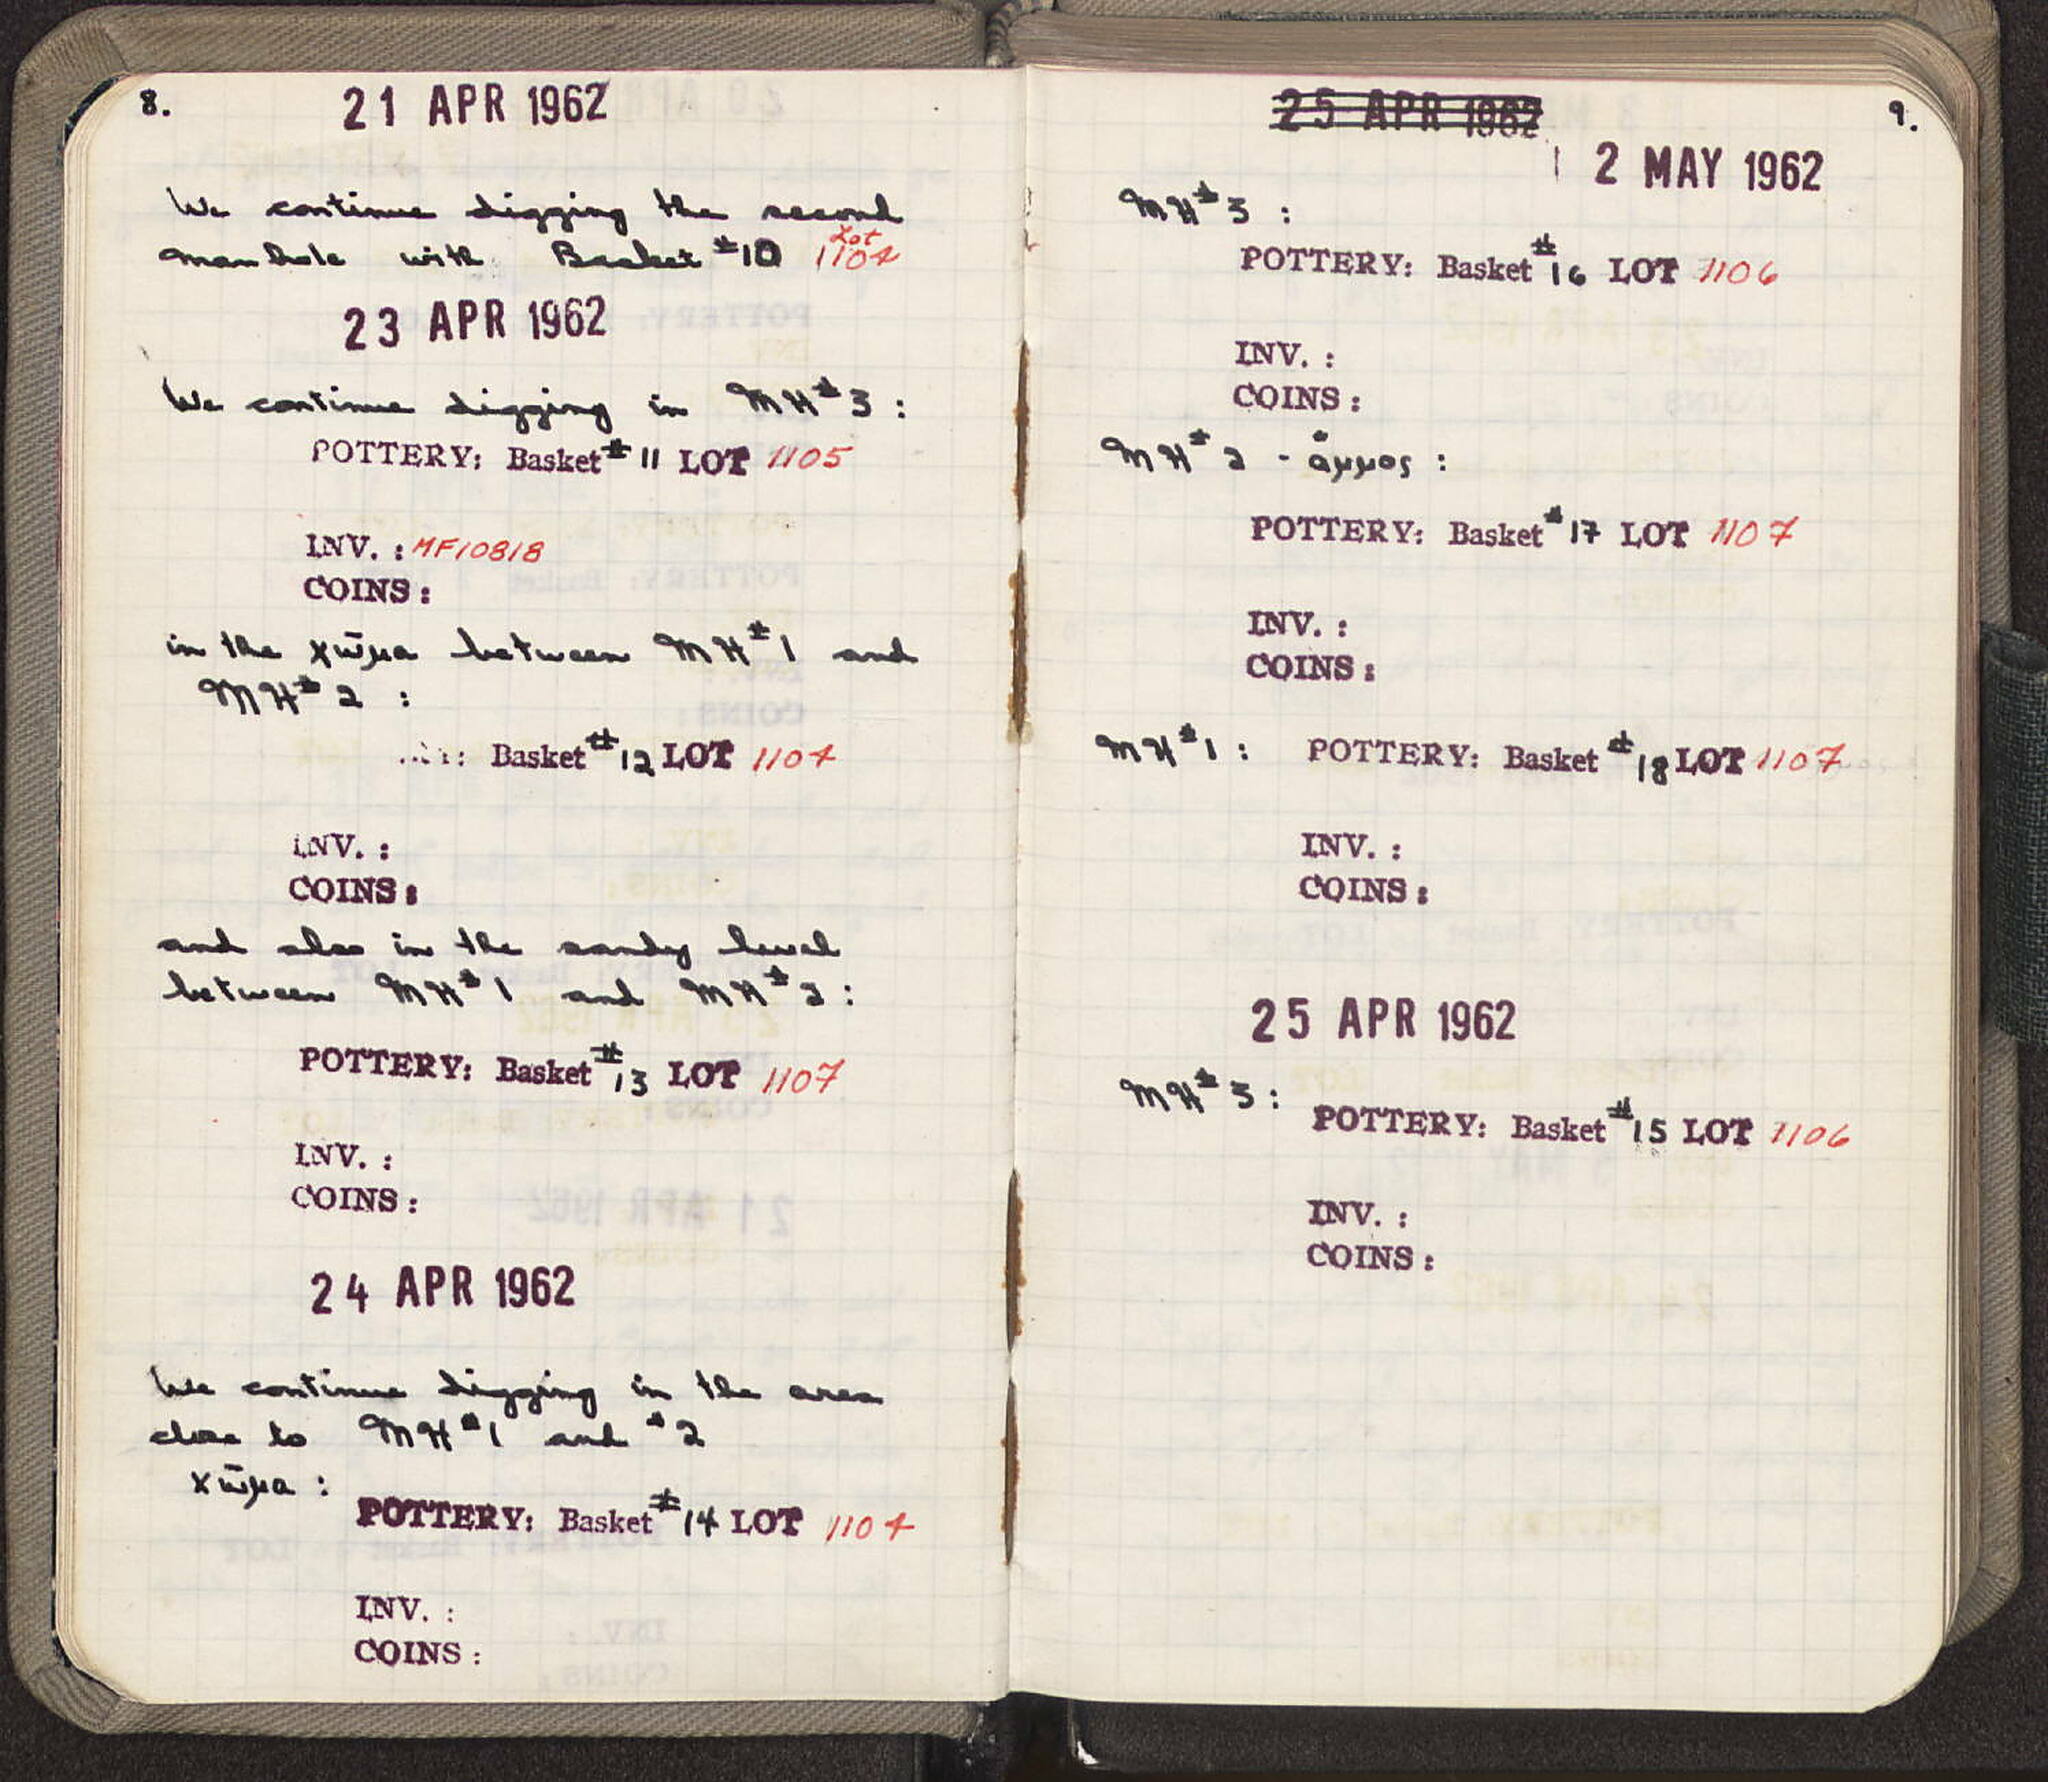 8.
21 APR 1962
We continue digging the second
Lot
manhole with Basket #10 1104
23 APR 1962
We continue digging in MH#3:
POTTERY: Basket #11 LOT 1105
INV.: MF10818
COINS:
in the χῶμα between MH#1 and
MH#2:
Basket #12 LOT 1104
INV.:
COINS:
and also in the sandy level
between MH#1 and MH#2:
POTTERY: Basket #13 LOT 1107
INV.:
COINS:
24 APR 1962
We continue digging in the area
close to MH#1 and #2
χῶμα:
POTTERY: Basket #14 LOT 1104
INV.:
COINS:
9.
25 APR 1962
2 MAY 1962
MH#3:
POTTERY: Basket #16 LOT 1106
INV.:
COINS:
MH#2 - ἄμμος:
POTTERY: Basket #17 LOT 1107
INV.:
COINS:
MH#1: POTTERY: Basket #18 LOT 1107
INV.:
COINS:
25 APR 1962
MH#3:
POTTERY: Basket #15 LOT 1106
INV.:
COINS: